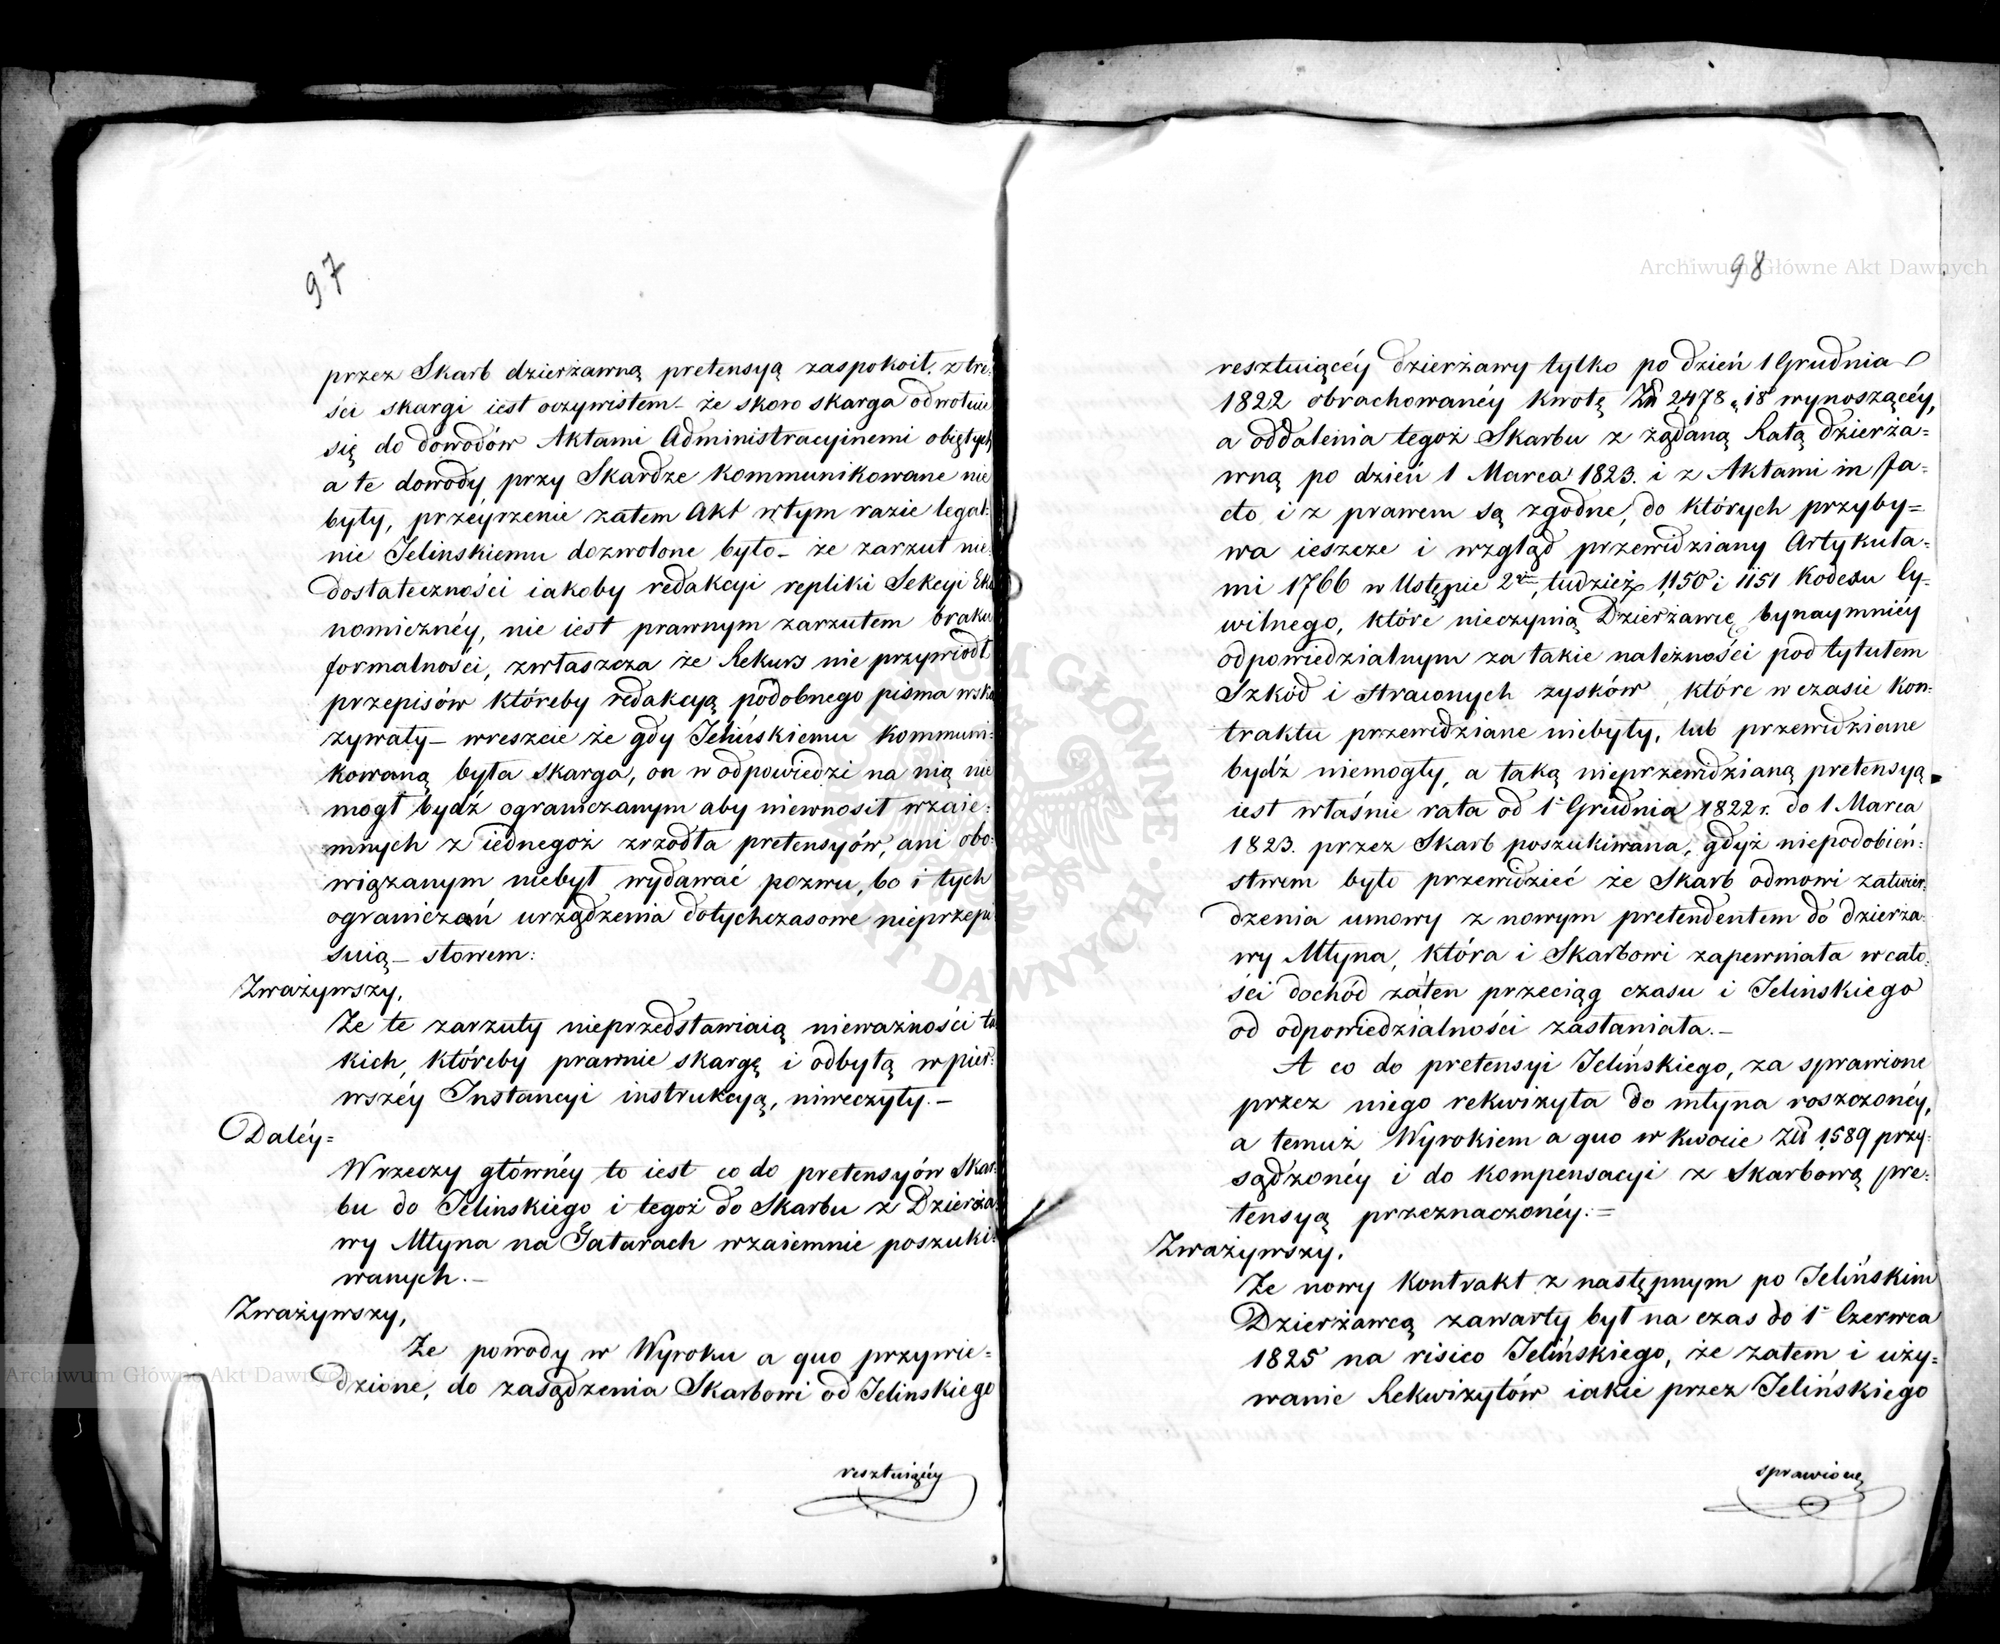 97
przez Skarb dzierżawną pretensyą zaspokoił. z tre:
ści skargi iest oczywistem – że skoro skarga odwołuie
się do dowodów Aktami Administracyinemi obiętych
a te dowody przy Skardze kommunikowane nie
były, przeyrzenie zatem Akt w tym razie legal:
nie Jelinskiemu dozwolone było – że zarzut nie:
dostateczności iakoby redakcyi repliki Sekcyi Eko
nomicznéy, nie iest prawnym zarzutem braku
formalności, zwłaszcza że Rekurs nie przywiodł
przepisów któreby redakcyą podobnego pisma wska
zywały – wreszcie że gdy Jelińskiemu kommuni:
kowaną była skarga, on w odpowiedzi na nią nie
mogł bydź ograniczanym aby niewnosił wzaie:
mnych z iednegoż zrzódła pretensyów, ani obo:
wiązanym niebył wydawać pozwu, bo i tych
ograniczań urządzenia dotychczasowe nieprzepi
suią – słowem:
Zważywszy,
Że te zarzuty nieprzedstawiaią nieważności ta
kich, któreby prawnie skargę i odbytą w pier:
wszéy Instancyi instrukcyą, niweczyły. –
Daléy =
W rzeczy głównéy to iest co do pretensyów Skar:
bu do Jelinskiego i tegoż do Skarbu z Dzierża
wy Młyna na Tatarach wzaiemnie poszuki:
wanych. –
Zważywszy,
Że powody w Wyroku a quo przywie =
dzione, do zasądzenia Skarbowi od Jelinskiego
resztuiącéy
98
resztuiącéy dzierżawy tylko po dzień 1 Grudnia
1822 obrachowanéy kwotę Złł 2478 g 18 wynoszącéy,
a oddalenia tegoż Skarbu z żądaną Ratą dzierża =
wną po dzień 1 Marca 1823. i z Aktami in fa =
cto i z prawem są zgodne, do których przyby =
wa ieszcze i wzgląd przewidziany Artykuła =
mi 1766 w Ustępie 2im, tudzież 1150 i 1151 Kodexu Cy =
wilnego, które nieczynią Dzierżawcę bynaymniéy
odpowiedzialnym za takie należności pod tytułem
Szkód i straconych zysków, które w czasie kon:
traktu przewidziane niebyły, lub przewidziane
bydź niemogły, a taką nieprzewidzianą pretensyą
iest właśnie rata od 1 Grudnia 1822 r. do 1 Marca
1823. przez Skarb poszukiwana, gdyż niepodobień:
stwem było przewidzieć że Skarb odmowi zatwier:
dzenia umowy z nowym pretendentem do dzierża:
wy Młyna, która i Skarbowi zapewniała w cało:
ści dochód zaten przeciąg czasu i Jelinskiego
od odpowiedzialności zasłaniała. –
A co do pretensyi Jelińskiego, za sprawione
przez niego rekwizyta do młyna roszczonéy,
a temuż Wyrokiem a quo w kwocie Złł 1589 przy:
sądzonéy i do kompensacyi z Skarbową pre:
tensyą przeznaczonéy. =
Zważywszy,
Że nowy kontrakt z następnym po Jelińskim
Dzierżawcą zawarty był na czas do 1 Czerwca
1825 na risico Jelińskiego, że zatem i uży =
wanie Rekwizytów iakie przez Jelińskiego
sprawione
Archiwum Główne Akt Dawnych
Archiwum Główne Akt Dawnych